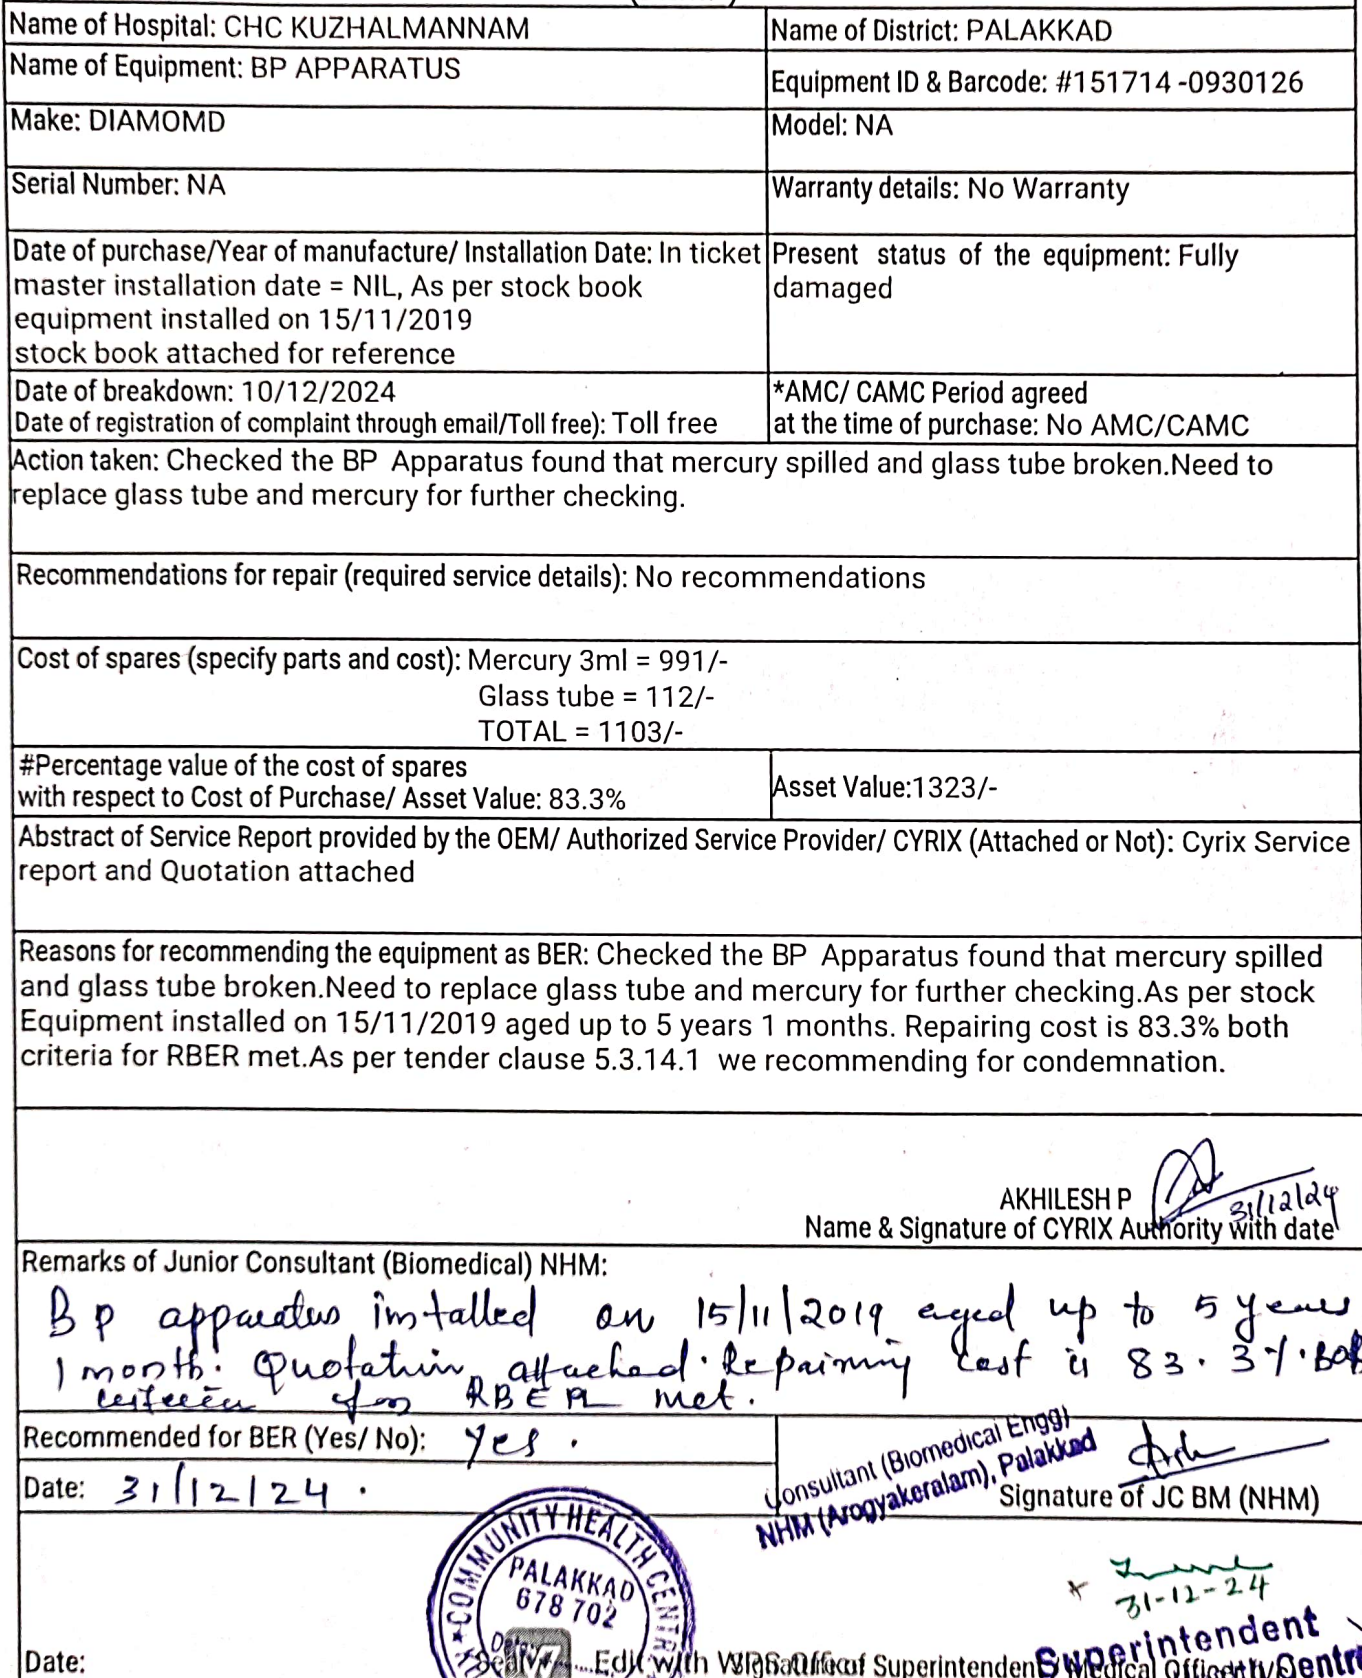 Name of Hospital: CHC KUZHALMANNAM
Name of District: PALAKKAD
Name of Equipment: BP APPARATUS
Equipment ID & Barcode: #151714 -0930126
Make: DIAMOMD
Model: NA
Serial Number: NA
Warranty details: No Warranty
Date of purchase/Year of manufacture/ Installation Date: In ticket
master installation date = NIL, As per stock book
equipment installed on 15/11/2019
stock book attached for reference
Present status of the equipment: Fully
damaged
Date of breakdown: 10/12/2024
Date of registration of complaint through email/Toll free): Toll free
*AMC/ CAMC Period agreed
at the time of purchase: No AMC/CAMC
Action taken: Checked the BP Apparatus found that mercury spilled and glass tube broken.Need to
replace glass tube and mercury for further checking.
Recommendations for repair (required service details): No recommendations
Cost of spares (specify parts and cost): Mercury 3ml = 991/-
Glass tube = 112/-
TOTAL = 1103/-
#Percentage value of the cost of spares
with respect to Cost of Purchase/ Asset Value: 83.3%
Asset Value:1323/-
Abstract of Service Report provided by the OEM/ Authorized Service Provider/ CYRIX (Attached or Not): Cyrix Service
report and Quotation attached
Reasons for recommending the equipment as BER: Checked the BP Apparatus found that mercury spilled
and glass tube broken.Need to replace glass tube and mercury for further checking.As per stock
Equipment installed on 15/11/2019 aged up to 5 years 1 months. Repairing cost is 83.3% both
criteria for RBER met.As per tender clause 5.3.14.1 we recommending for condemnation.
AKHILESH P
31/12/24
Name & Signature of CYRIX Authority with date
Remarks of Junior Consultant (Biomedical) NHM:
BP apparatus installed on 15/11/2019 aged up to 5 years
1 month. Quotation attached. Repairing cost is 83.3%. Both
criteria for RBER met.
Recommended for BER (Yes/ No): Yes.
Date: 31/12/24.
Consultant (Biomedical Engg)
NHM (Arogyakeralam), Palakkad
Signature of JC BM (NHM)
COMMUNITY HEALTH CENTR
PALAKKAD
678 702
31-12-24
Superintendent
Date:
Edit with WPS Office
of Superintendent